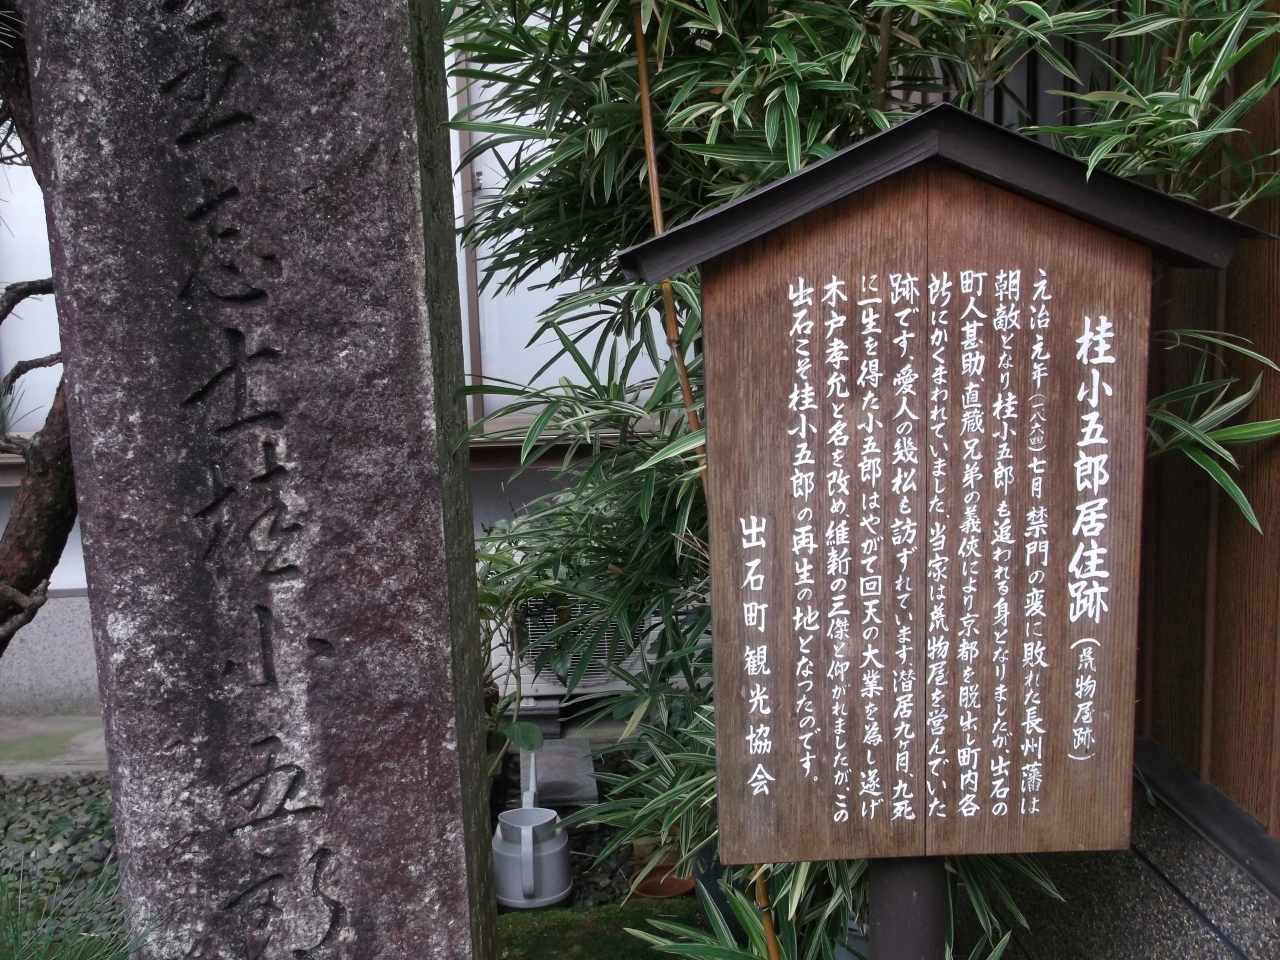 志士桂小五郎
桂小五郎居住跡(荒物屋跡)
元治元年(一八六四)七月禁門の変に敗れた長州藩は
朝敵となり桂小五郎も追われる身となりましたが出石の
町人甚助、直蔵兄弟の義侠により京都を脱出し町内各
所にかくまわれていました、当家は荒物屋を営んでいた
跡です、愛人の幾松も訪ずれています、潜居九ヶ月、九死
に一生を得た小五郎はやがて回天の大業を為し遂げ
木戸孝允と名を改め、維新の三傑と仰がれましたが、この
出石こそ桂小五郎の再生の地となったのです。
出石町観光協会